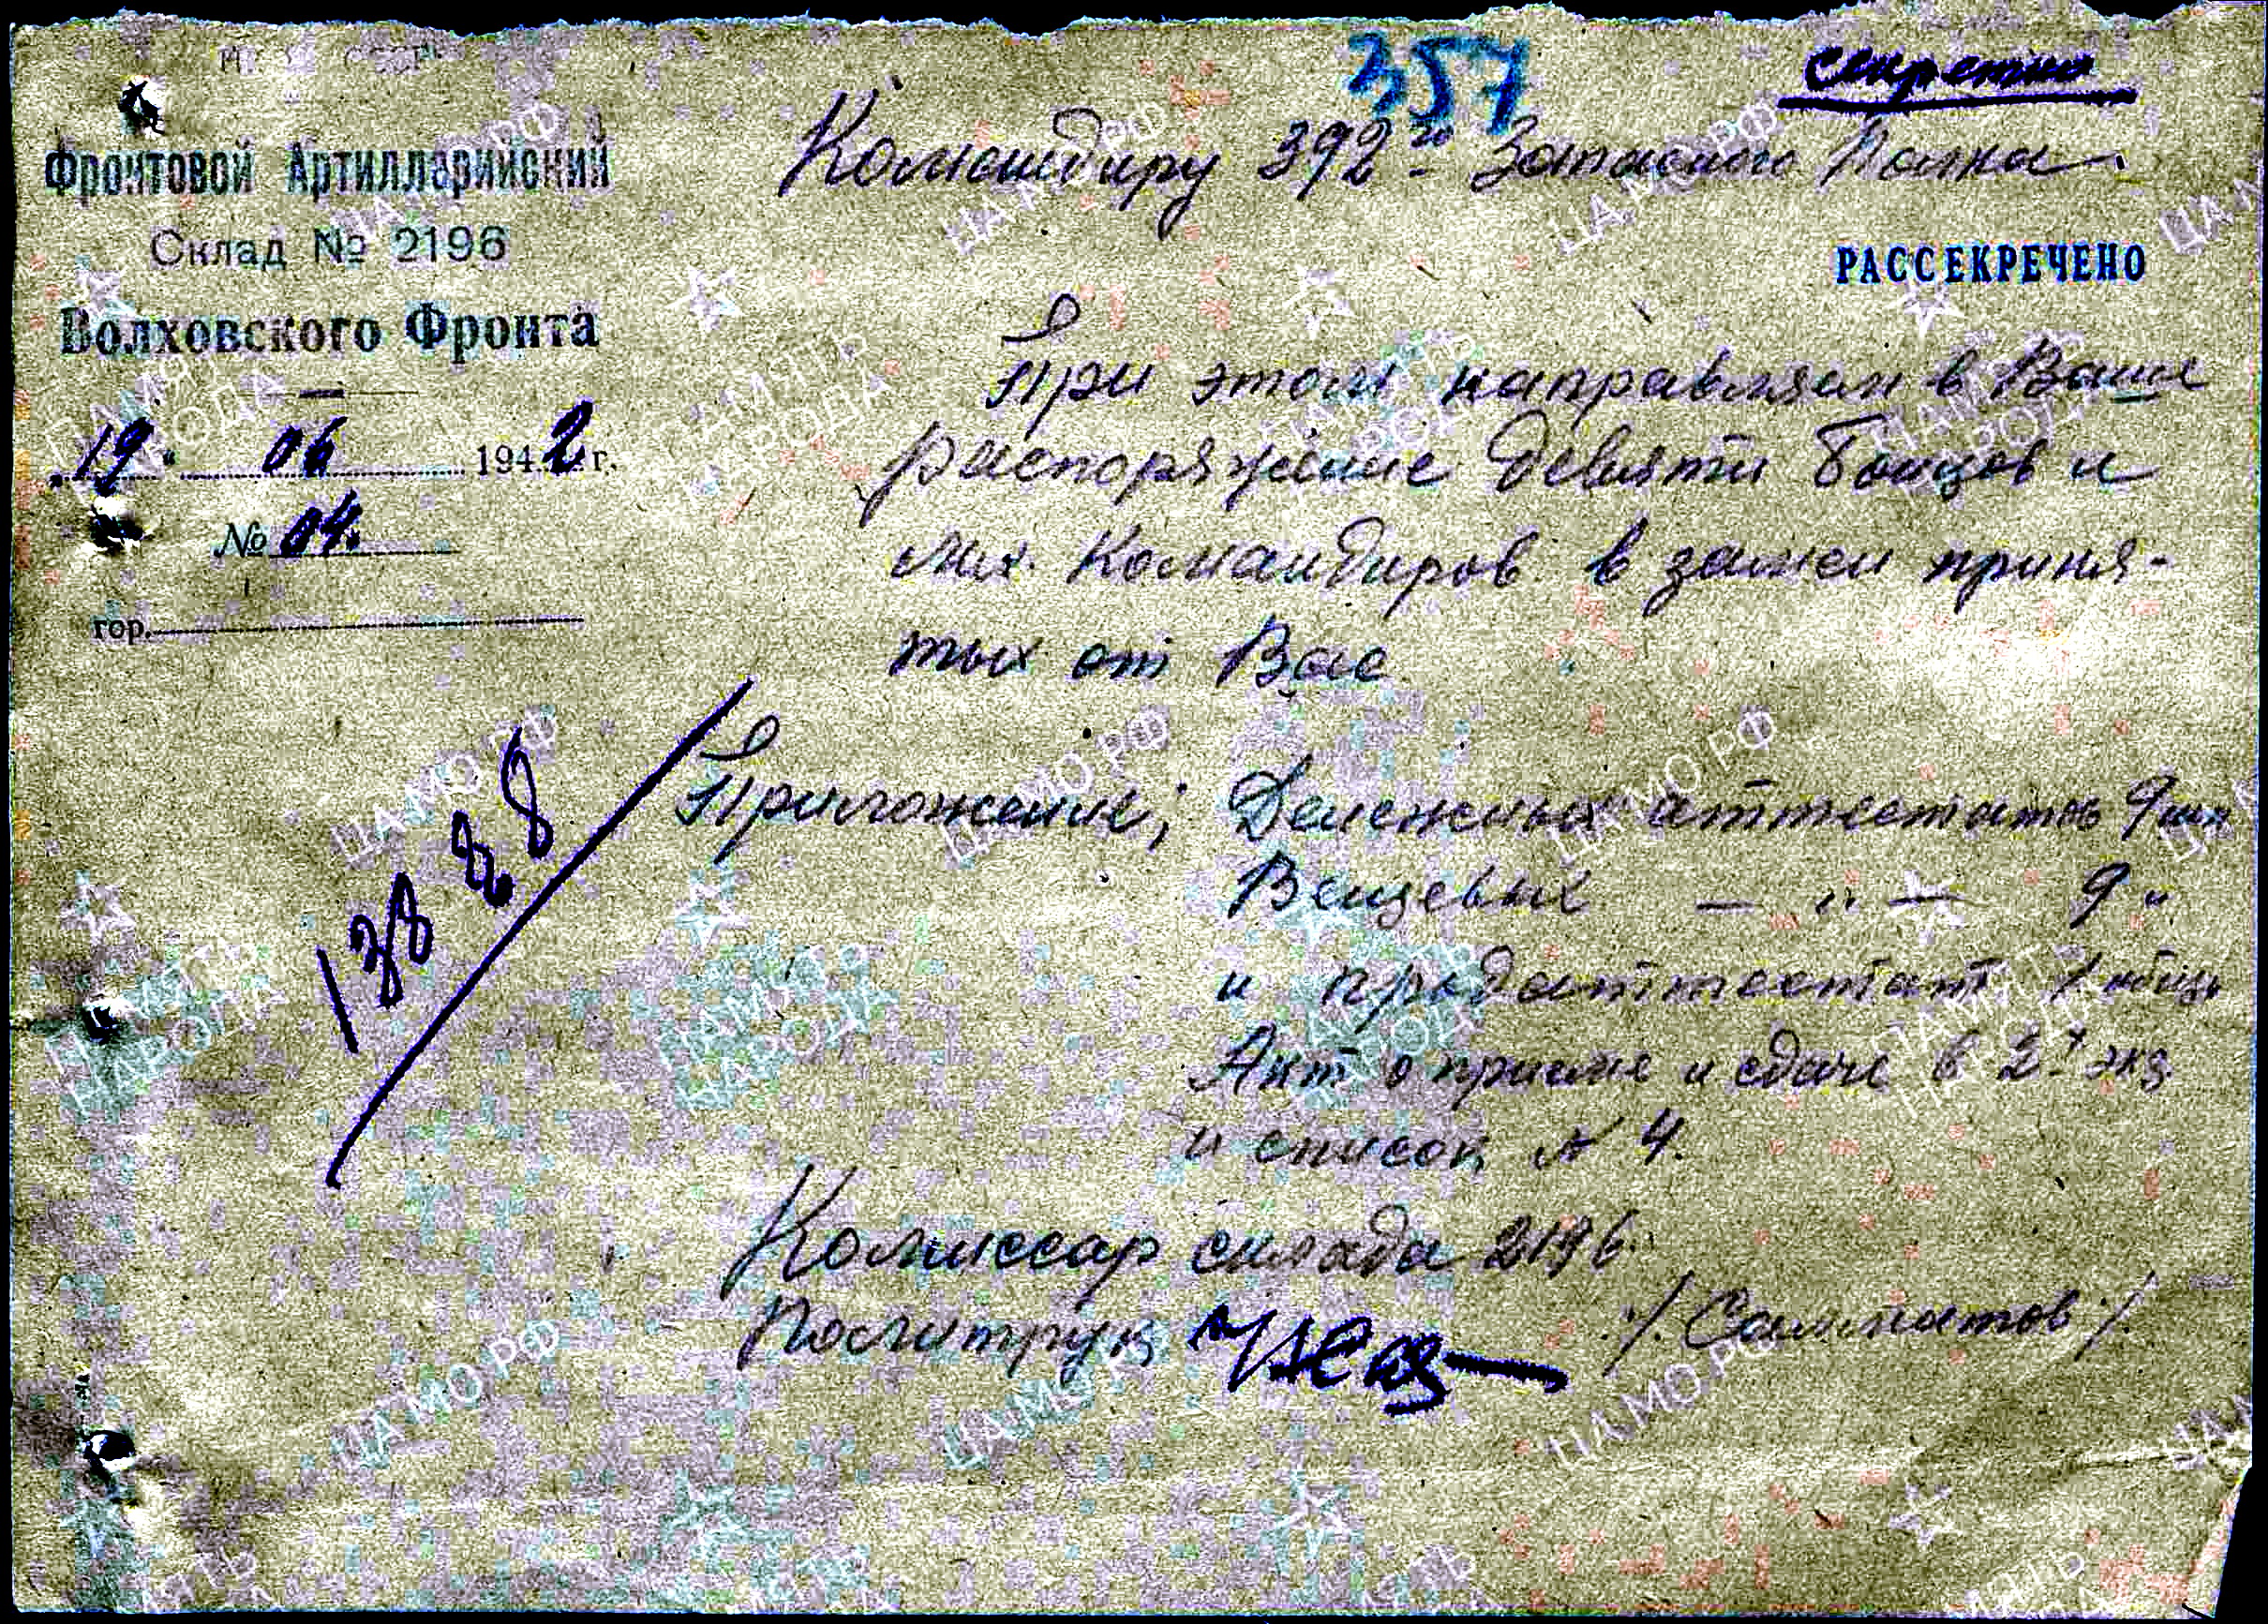 357
Секретно
Командиру 392го Запасного Полка
РАССЕКРЕЧЕНО
Фронтовой Артиллерийский
Склад № 2196
Волховского Фронта
19. 06 1942 г.
№ 04.
гор.
При этом направляем в Ваше
распоряжение девяти бойцов и
мл. Командиров в замен приня-
тых от Вас
Приложение; Денежных аттестатов 9 шт
Вещевых — " — 9 "
и продаттестат 1
Акт о приеме и сдаче в 2х экз.
и список № 4.
Комиссар склада 2196.
Политрук /. Салматов ./